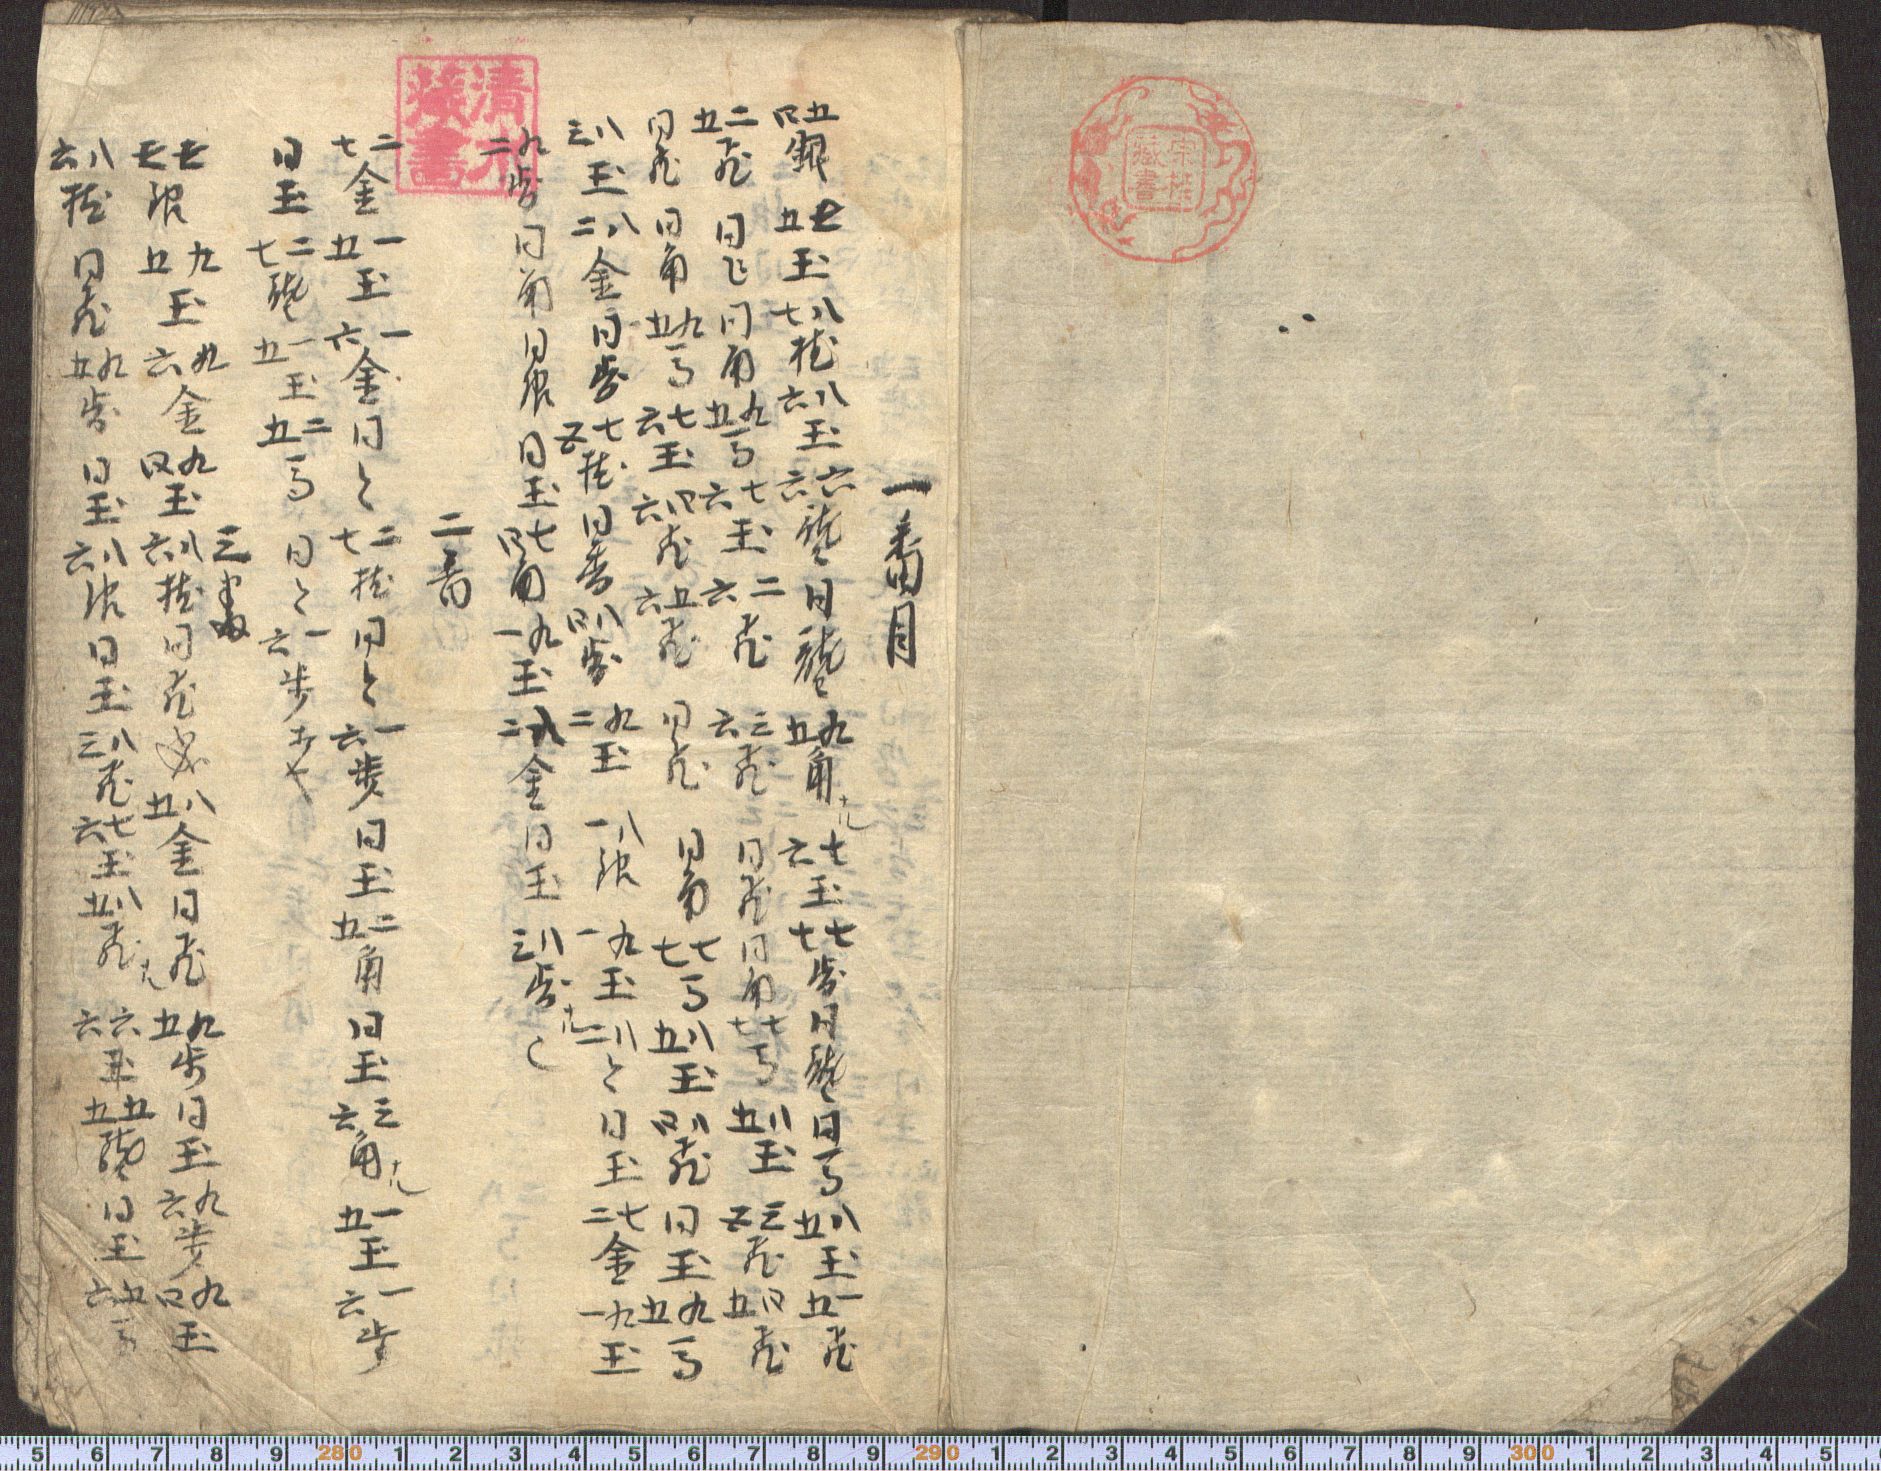 宗桂
蔵書
清
蔵書
一番目
五四銀 七五玉 八七桂 八六玉 六六龍 同龍 九五角 七六玉 七七歩 同龍 同馬 八五玉 一五飛
二五飛 同飛 同角 九五馬 七六玉 二六飛 三六飛 同飛 同角 七七馬 八五玉 三五飛 四五飛
同飛 同角 九五馬 七六玉 四六飛 五六飛 同飛 同角 七七馬 八五玉 八四飛 同玉 九五馬
八三玉 八二金 同歩 七五桂 同香 八四歩 九二玉 八一銀 九一玉 八二と 同玉 七二金 九一玉
九二歩 同角 同銀 同玉 七四角 九一玉 八二金 同玉 八三歩
二番
二七金 一五玉 一六金 同と 二七桂 同と 一六歩 同玉 二五角 同玉 三六角 一五玉 一六歩
同玉 二七龍 一五玉 二五馬 同と 一六歩
三番
七七銀 九五玉 九六金 九四玉 八六桂 同飛 八五金 同飛 九五歩 同玉 九六歩 九四玉
八六桂 同飛 九五歩 同玉 八六銀 同玉 八三飛 七六玉 八五飛 六六玉 五五龍 同玉 五六馬